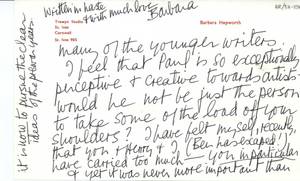 Written in haste
& with much love
Barbara
Trewyn Studio
St. Ives
Cornwall
Barbara Hepworth
many of the younger writers.
I feel that Paul is so exceptionally
perceptive & creative towards artists
would he not be just the person
to take some of the load off your
shoulders? I have felt myself, recently
that you & Henry & I (Ben has escaped!)
have carried too much – you in particular
& yet it was never more important than
it is now to pursue the clear
ideas of the